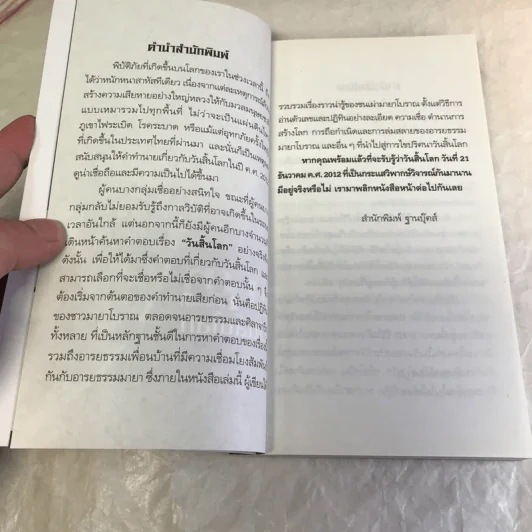 คำนำสำนักพิมพ์
พิบัติภัยที่เกิดขึ้นบนโลกของเราในช่วงเวลานี้
ได้ว่าหนักหนาสาหัสทีเดียว เนื่องจากแต่ละเหตุการณ์
สร้างความเสียหายอย่างใหญ่หลวงให้กับมวลมนุษยชาติ
แบบเหมารวมไปทุกพื้นที่ ไม่ว่าจะเป็นแผ่นดิน
ภูเขาไฟระเบิด โรคระบาด หรือแม้แต่อุทกภัยครั้ง
ที่เกิดขึ้นในประเทศไทยที่ผ่านมา และนั่นก็เป็นเหตุ
สนับสนุนให้คำทำนายเกี่ยวกับวันสิ้นโลกในปี ค.ศ.
ดูน่าเชื่อถือและมีความเป็นไปได้ขึ้นมา
ผู้คนบางกลุ่มเชื่ออย่างสนิทใจ ขณะที่ผู้คน
กลุ่มกลับไม่ยอมรับรู้ถึงกาลวิบัติที่อาจเกิดขึ้นใน
เวลาอันใกล้ แต่นอกจากนี้ก็ยังมีผู้คนอีกบางจำนวน
เดินหน้าค้นหาคำตอบเรื่อง "วันสิ้นโลก" อย่างจริง
ดังนั้น เพื่อให้ได้มาซึ่งคำตอบที่เกี่ยวกับวันสิ้นโลก และ
สามารถเลือกที่จะเชื่อหรือไม่เชื่อจากคำตอบนั้น ๆ
ต้องเริ่มจากต้นตอของคำทำนายเสียก่อน นั่นคือปฏิทิน
ของชาวมายาโบราณ ตลอดจนอารยธรรมและศิลาจารึก
ทั้งหลาย ที่เป็นหลักฐานชั้นดีในการหาคำตอบของเรื่องนี้
รวมถึงอารยธรรมเพื่อนบ้านที่มีความเชื่อมโยงสัมพันธ์
กันกับอารยธรรมมายา ซึ่งภายในหนังสือเล่มนี้ ผู้เขียนได้
รวบรวมเรื่องราวน่ารู้ของชนเผ่ามายาโบราณ ตั้งแต่วิธีการ
อ่านตัวเลขและปฏิทินอย่างละเอียด ความเชื่อ ตำนานการ
สร้างโลก การถือกำเนิดและการล่มสลายของอารยธรรม
มายาโบราณ และอื่น ๆ ที่นำไปสู่การไขปริศนาวันสิ้นโลก
หากคุณพร้อมแล้วที่จะรับรู้ว่าวันสิ้นโลก วันที่ 21
ธันวาคม ค.ศ. 2012 ที่เป็นกระแสวิพากษ์วิจารณ์กันมานาน
มีอยู่จริงหรือไม่ เรามาพลิกหนังสือหน้าต่อไปกันเลย
สำนักพิมพ์ ฐานบุ๊คส์